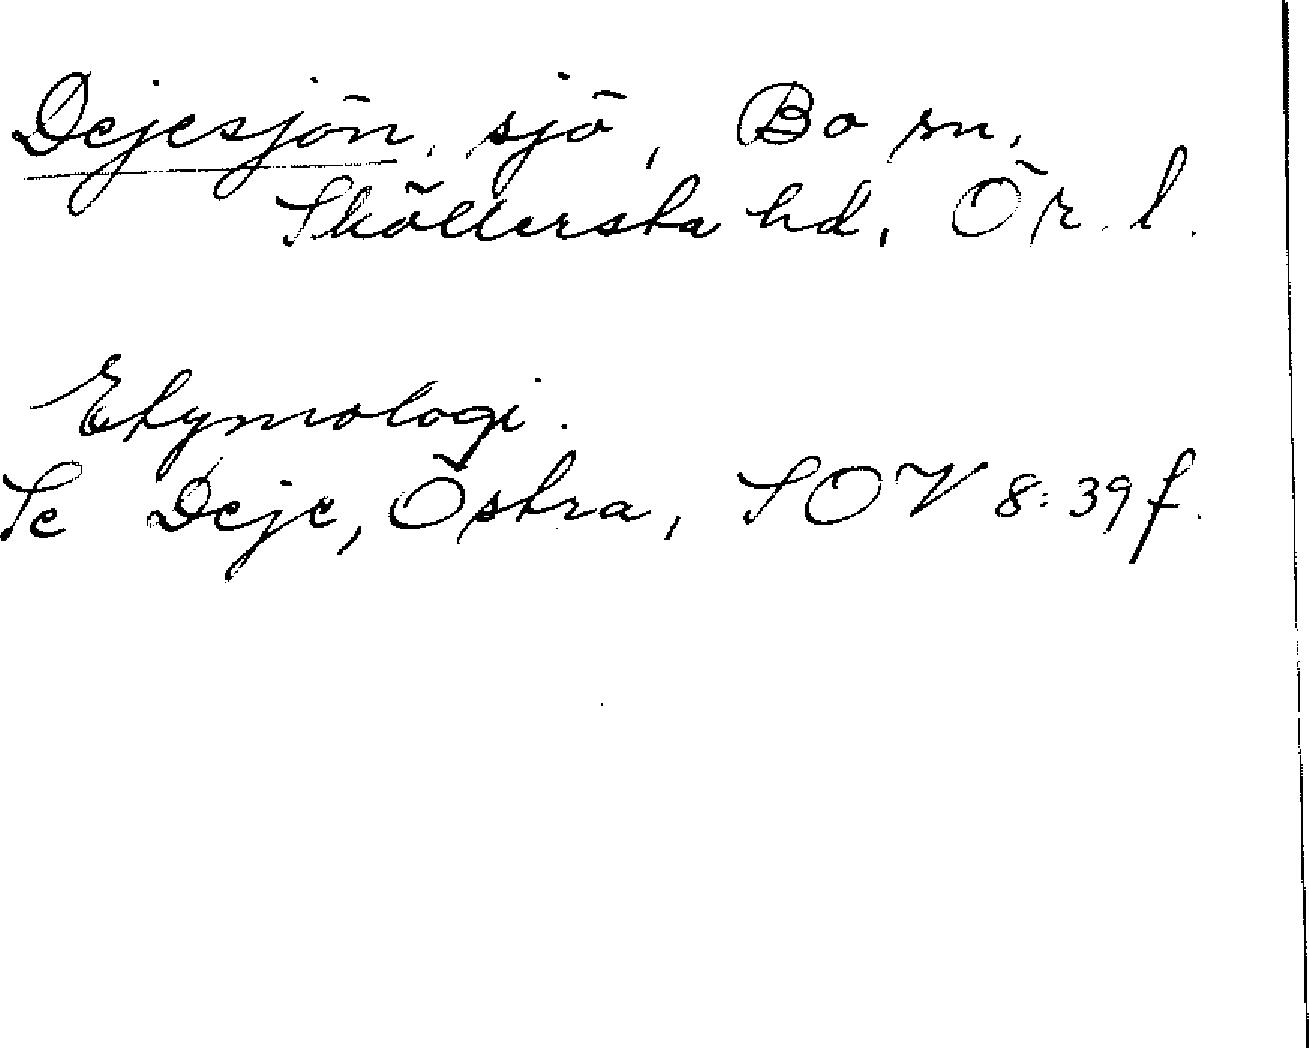 Dejesjön, sjö, Bo sn,
Sköllersta hd, Ör. l.
Etymologi.
Se Deje, Östra, SOV 8:39 f.